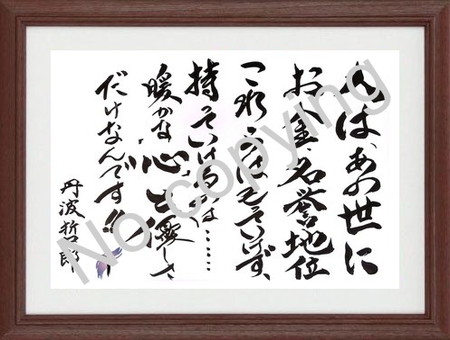 人は、あの世に
お金、名誉、地位
これらはもっていけず、
持っていけるのは……
暖かな心と優しさ
だけなんです!!
丹波哲郎
No copying